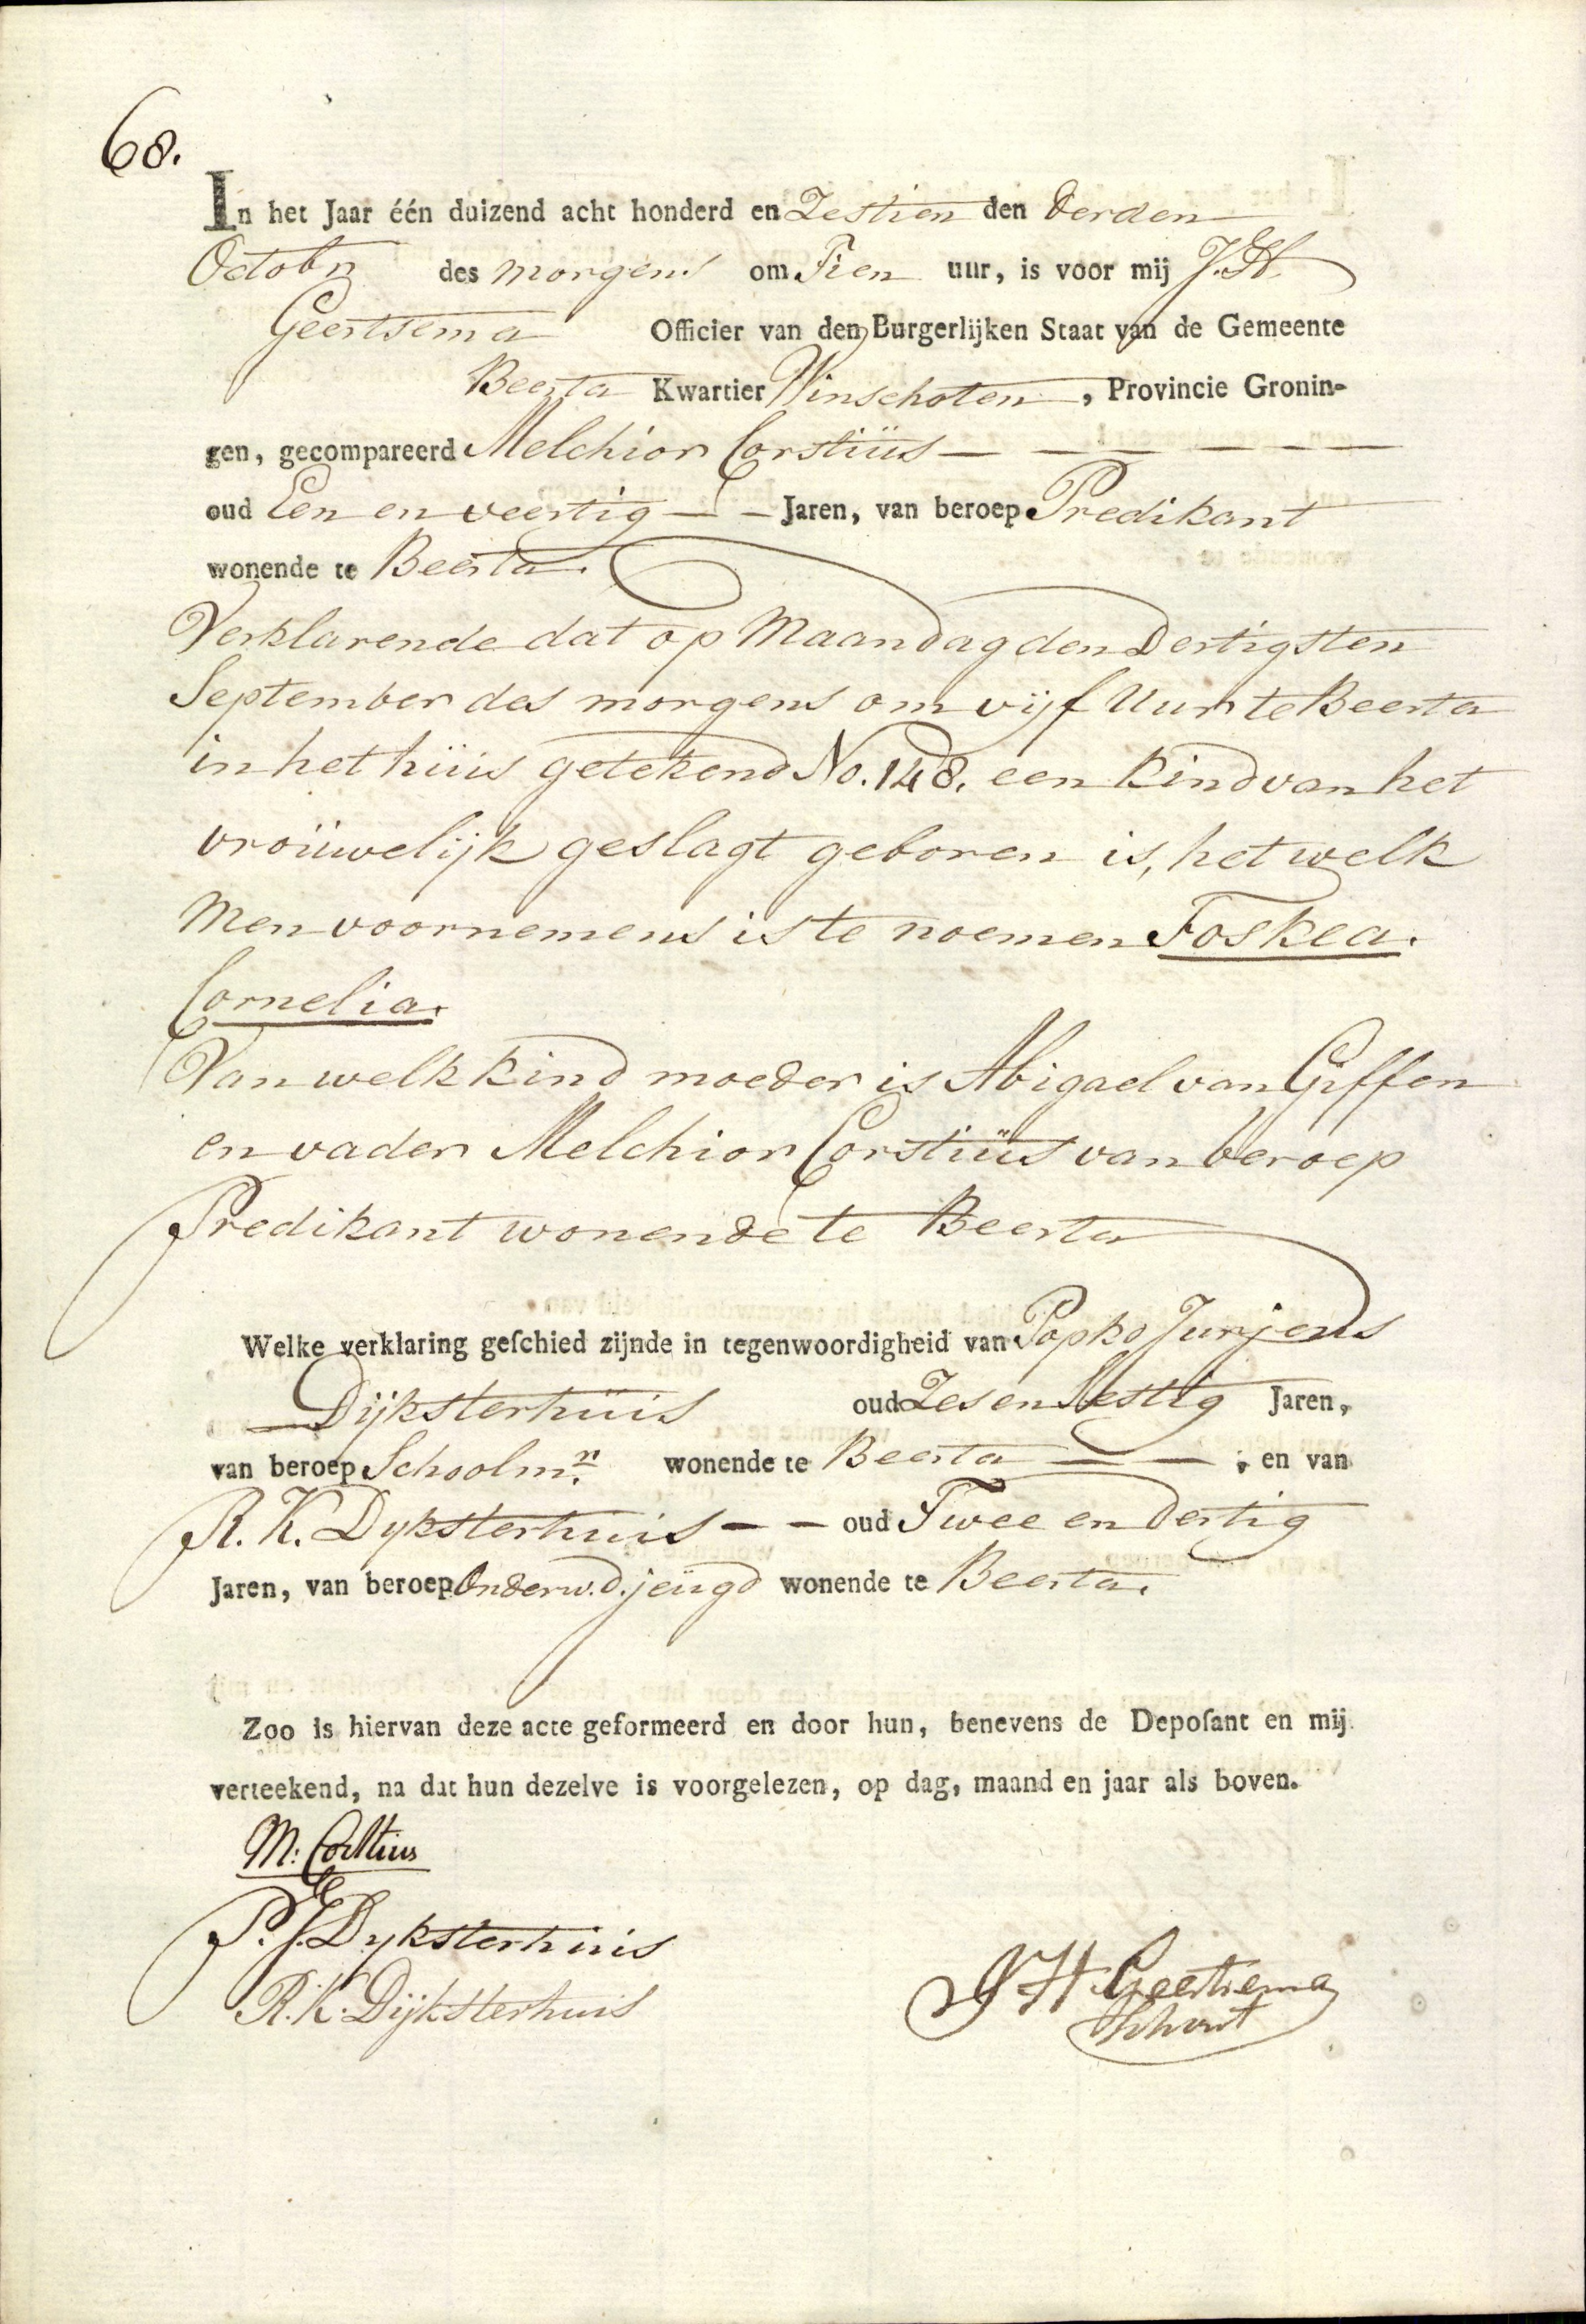 68.
In het Jaar één duizend acht honderd en Zestien den derden
Octobr des morgens om Tien uur, is voor mij J. H.
Geertsema Officier van den Burgerlijken Staat van de Gemeente
Beerta Kwartier Winschoten, Provincie Gronin-
gen, gecompareerd Melchior Corstiüs — — — — —
oud Een en veertig — — Jaren, van beroep Predikant
wonende te Beerta.
Verklarende dat op Maandag den Dertigsten
September des morgens om vijf Uur te Beerta
in het hüis getekend No. 148. een Kind van het
vroüwelijk geslagt geboren is, het welk
Men voornemens is te noemen Foskea.
Cornelia.
Van welk Kind moeder is Abigael van Giffen
en vader Melchior Corstiüs van beroep
Predikant wonende te Beerta
Welke verklaring geſchied zijnde in tegenwoordigheid van Popko Jurjens
Dijksterhüis oud Zes en Sestig Jaren,
van beroep Schoolmr. wonende te Beerta — — ; en van
R. K. Dyksterhuis — — oud Twee en dertig
Jaren, van beroep Onderw. d. jeügd wonende te Beerta.
Zoo is hiervan deze acte geformeerd en door hun, benevens de Depoſant en mij
verteekend, na dat hun dezelve is voorgelezen, op dag, maand en jaar als boven.
M: Corstius
P. J. Dyksterhüis
R. K. Dijksterhuis
J H Geertsema
Schout